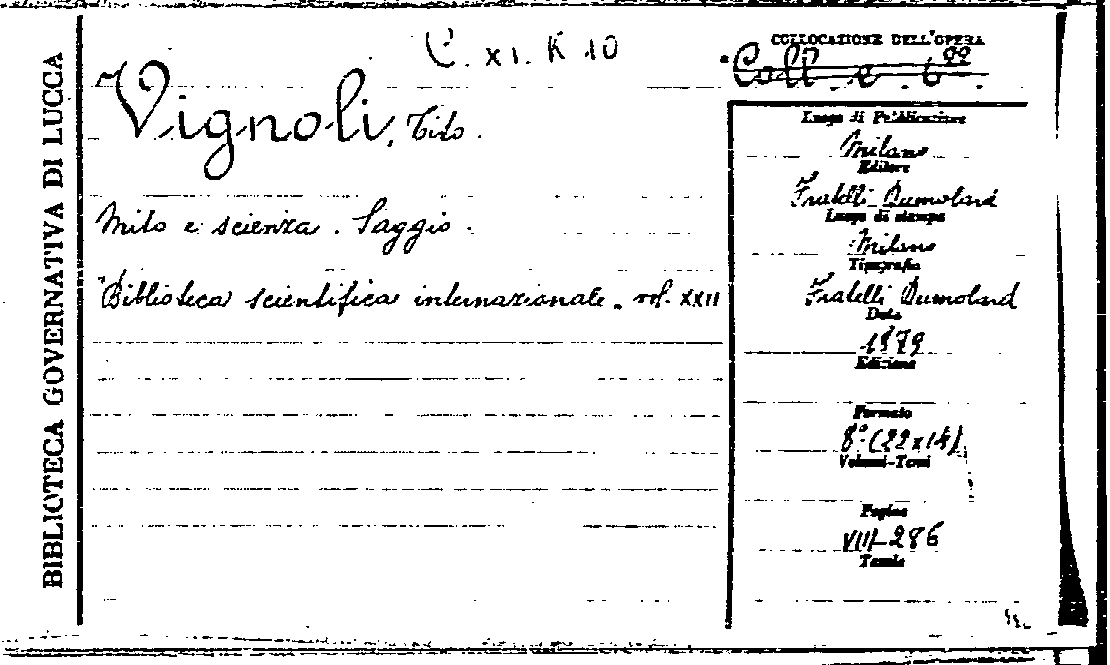 BIBLIOTECA GOVERNATIVA DI LUCCA
C. XI. K 10
Vignoli, Tito.
Mito e scienza. Saggio.
Biblioteca scientifica internazionale. vol. XXII
COLLOCAZIONE DELL'OPERA
Coll. e. 6
Luogo di Pubblicazione
Milano
Editore
Fratelli Dumolard
Luogo di stampa
Milano
Tipografia
Fratelli Dumolard
Data
1879
Edizione
Formato
8º (22x14)
Volumi-Tomi
Pagine
VIII-286
Tavole